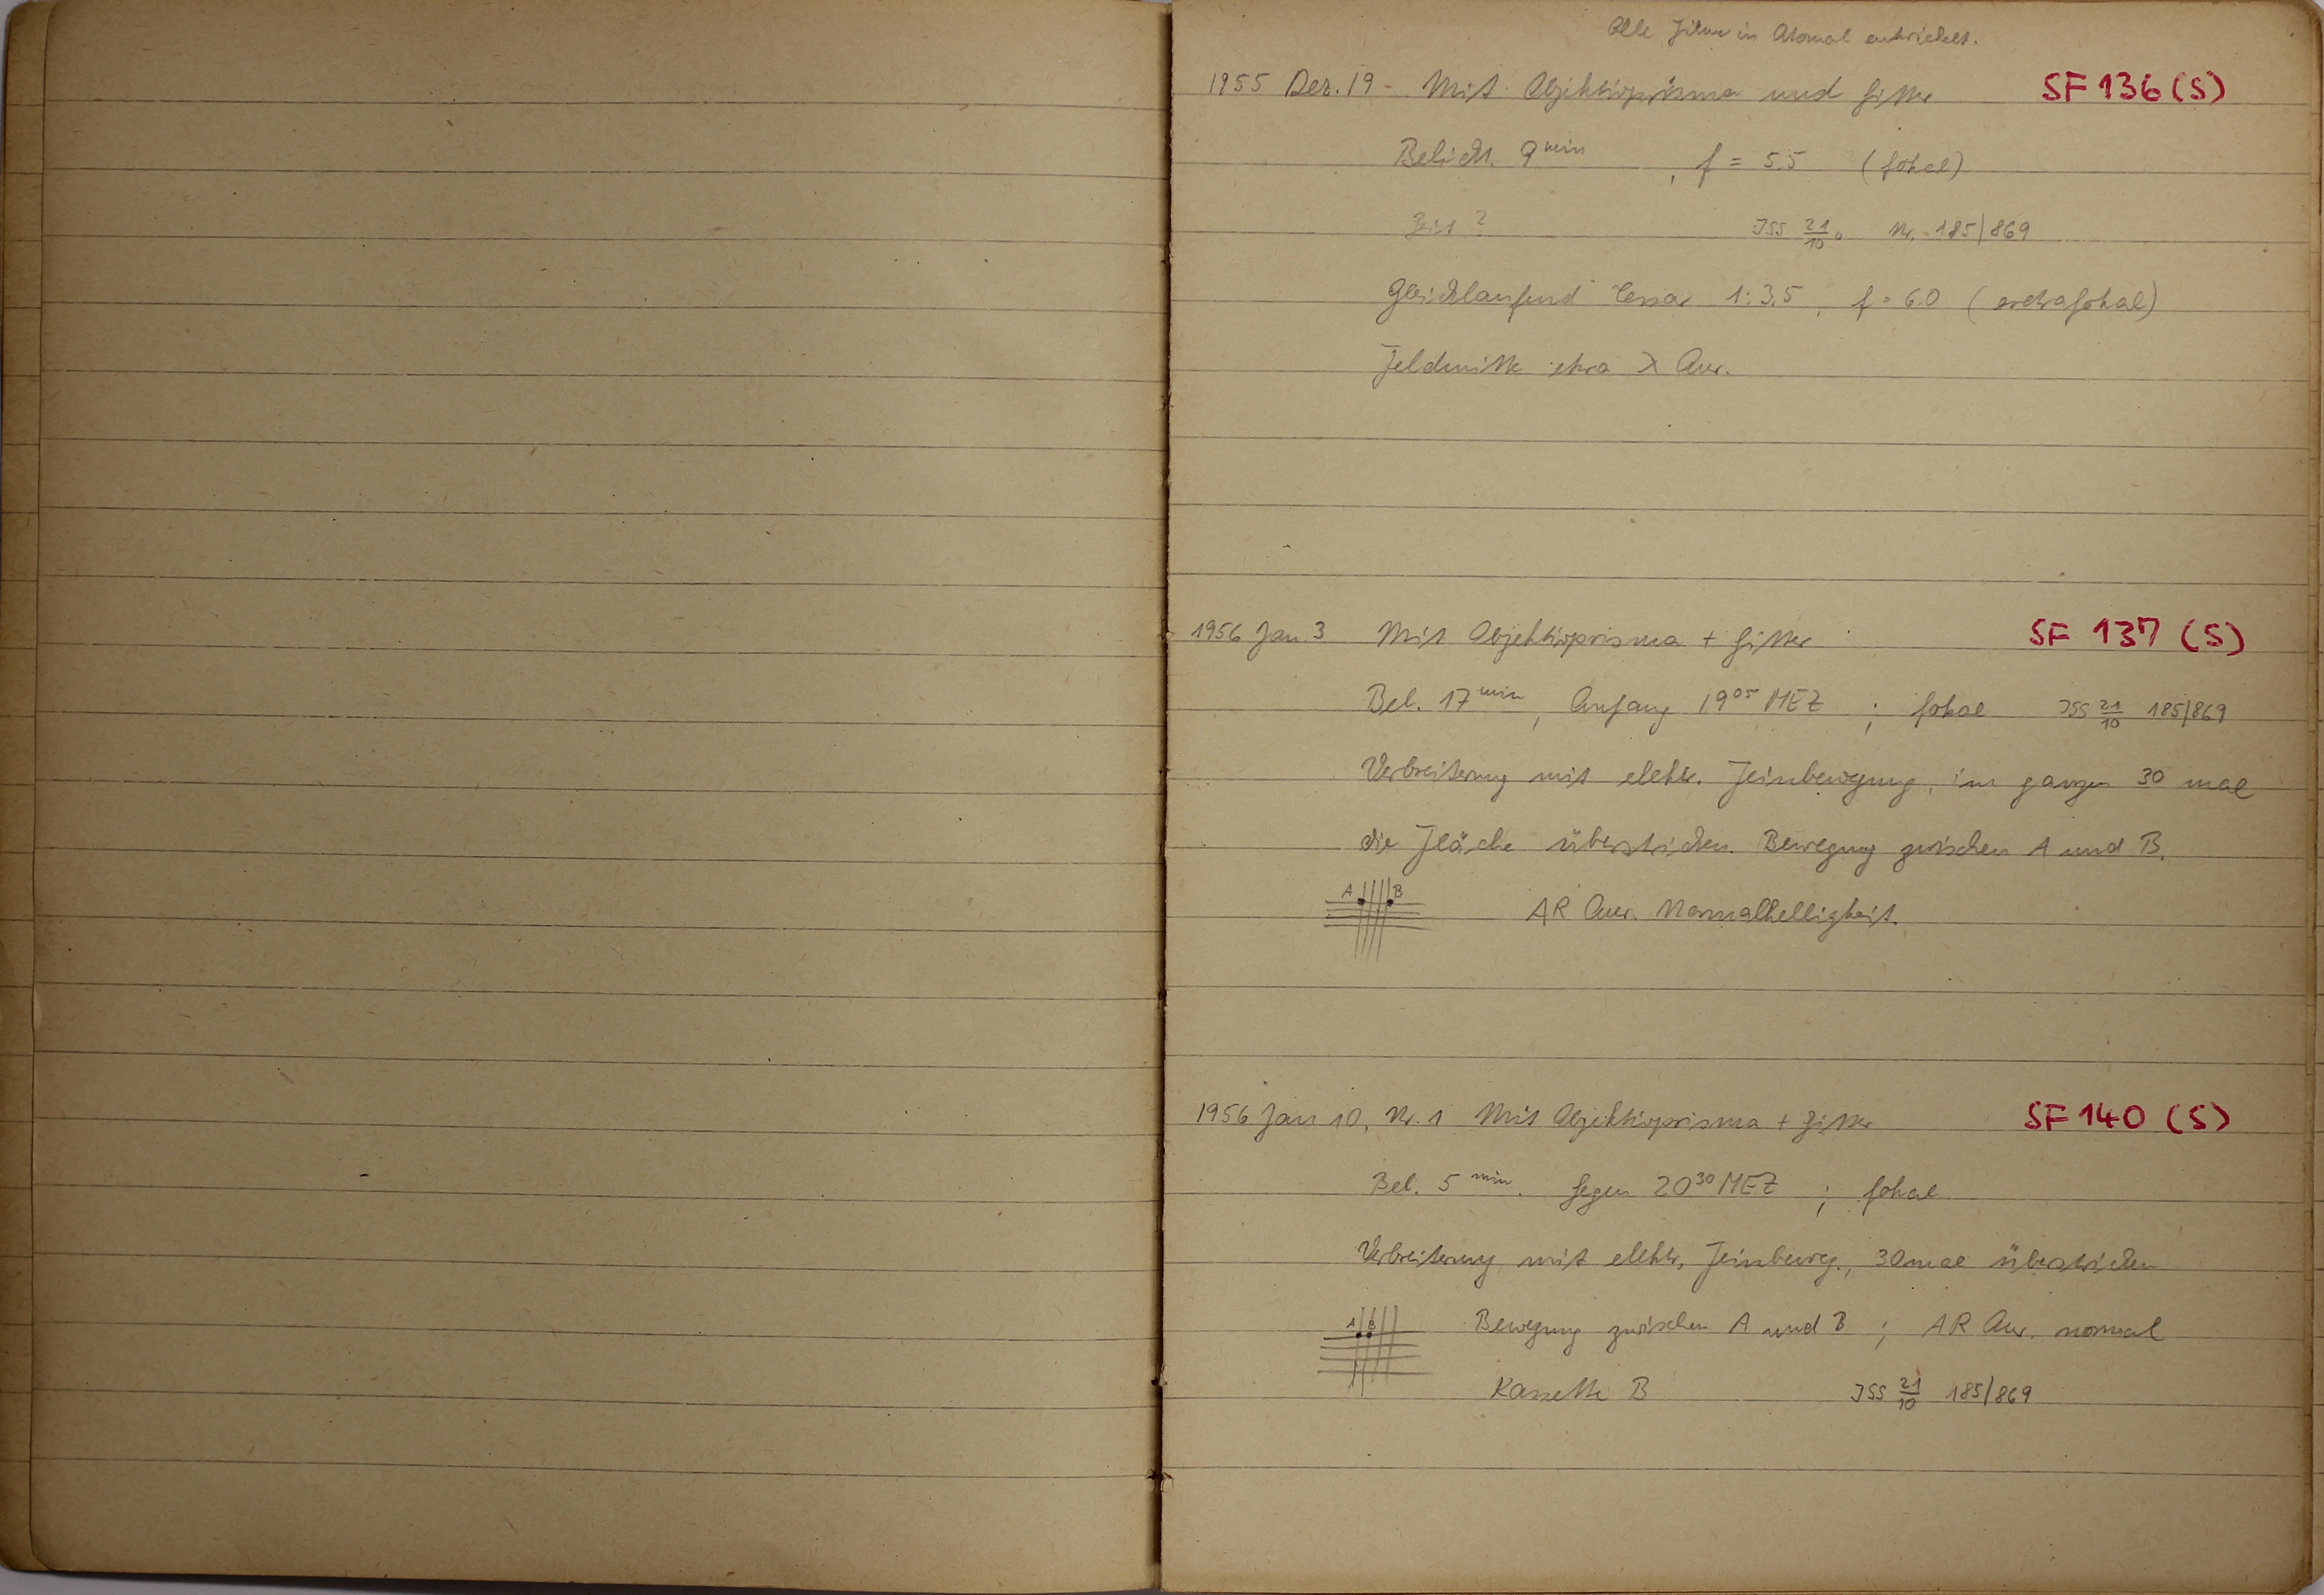 Alle Filme in Atomal entwickelt.
1955 Dez. 19 - Mit Objektivprisma und Gitter SF 136 (S)
Belicht. 9 min, f = 5.5 (fokal)
Zeit ? ISS 21/10 ° Nr. 185/869
Gleichlaufend Tessar 1:3.5, f = 6.0 (extrafokal)
Feldmitte etwa λ Aur.
1956 Jan. 3 Mit Objektivprisma + Gitter SF 137 (S)
Bel. 17 min, Anfang 19 05 MEZ ; fokal ISS 21/10 185/869
Verbreiterung mit elektr. Feinbewegung, im ganzen 30 mal
die Fläche überstrichen. Bewegung zwischen A und B.
A B AR Aur. Normalhelligkeit.
1956 Jan 10, Nr. 1 Mit Objektivprisma + Gitter SF 140 (S)
Bel. 5 min. Gegen 20 30 MEZ ; fokal
Verbreiterung mit elektr. Feinbeweg., 30mal überstrichen
A B Bewegung zwischen A und B ; AR Aur. normal
Kassette B ISS 21/10 185/869